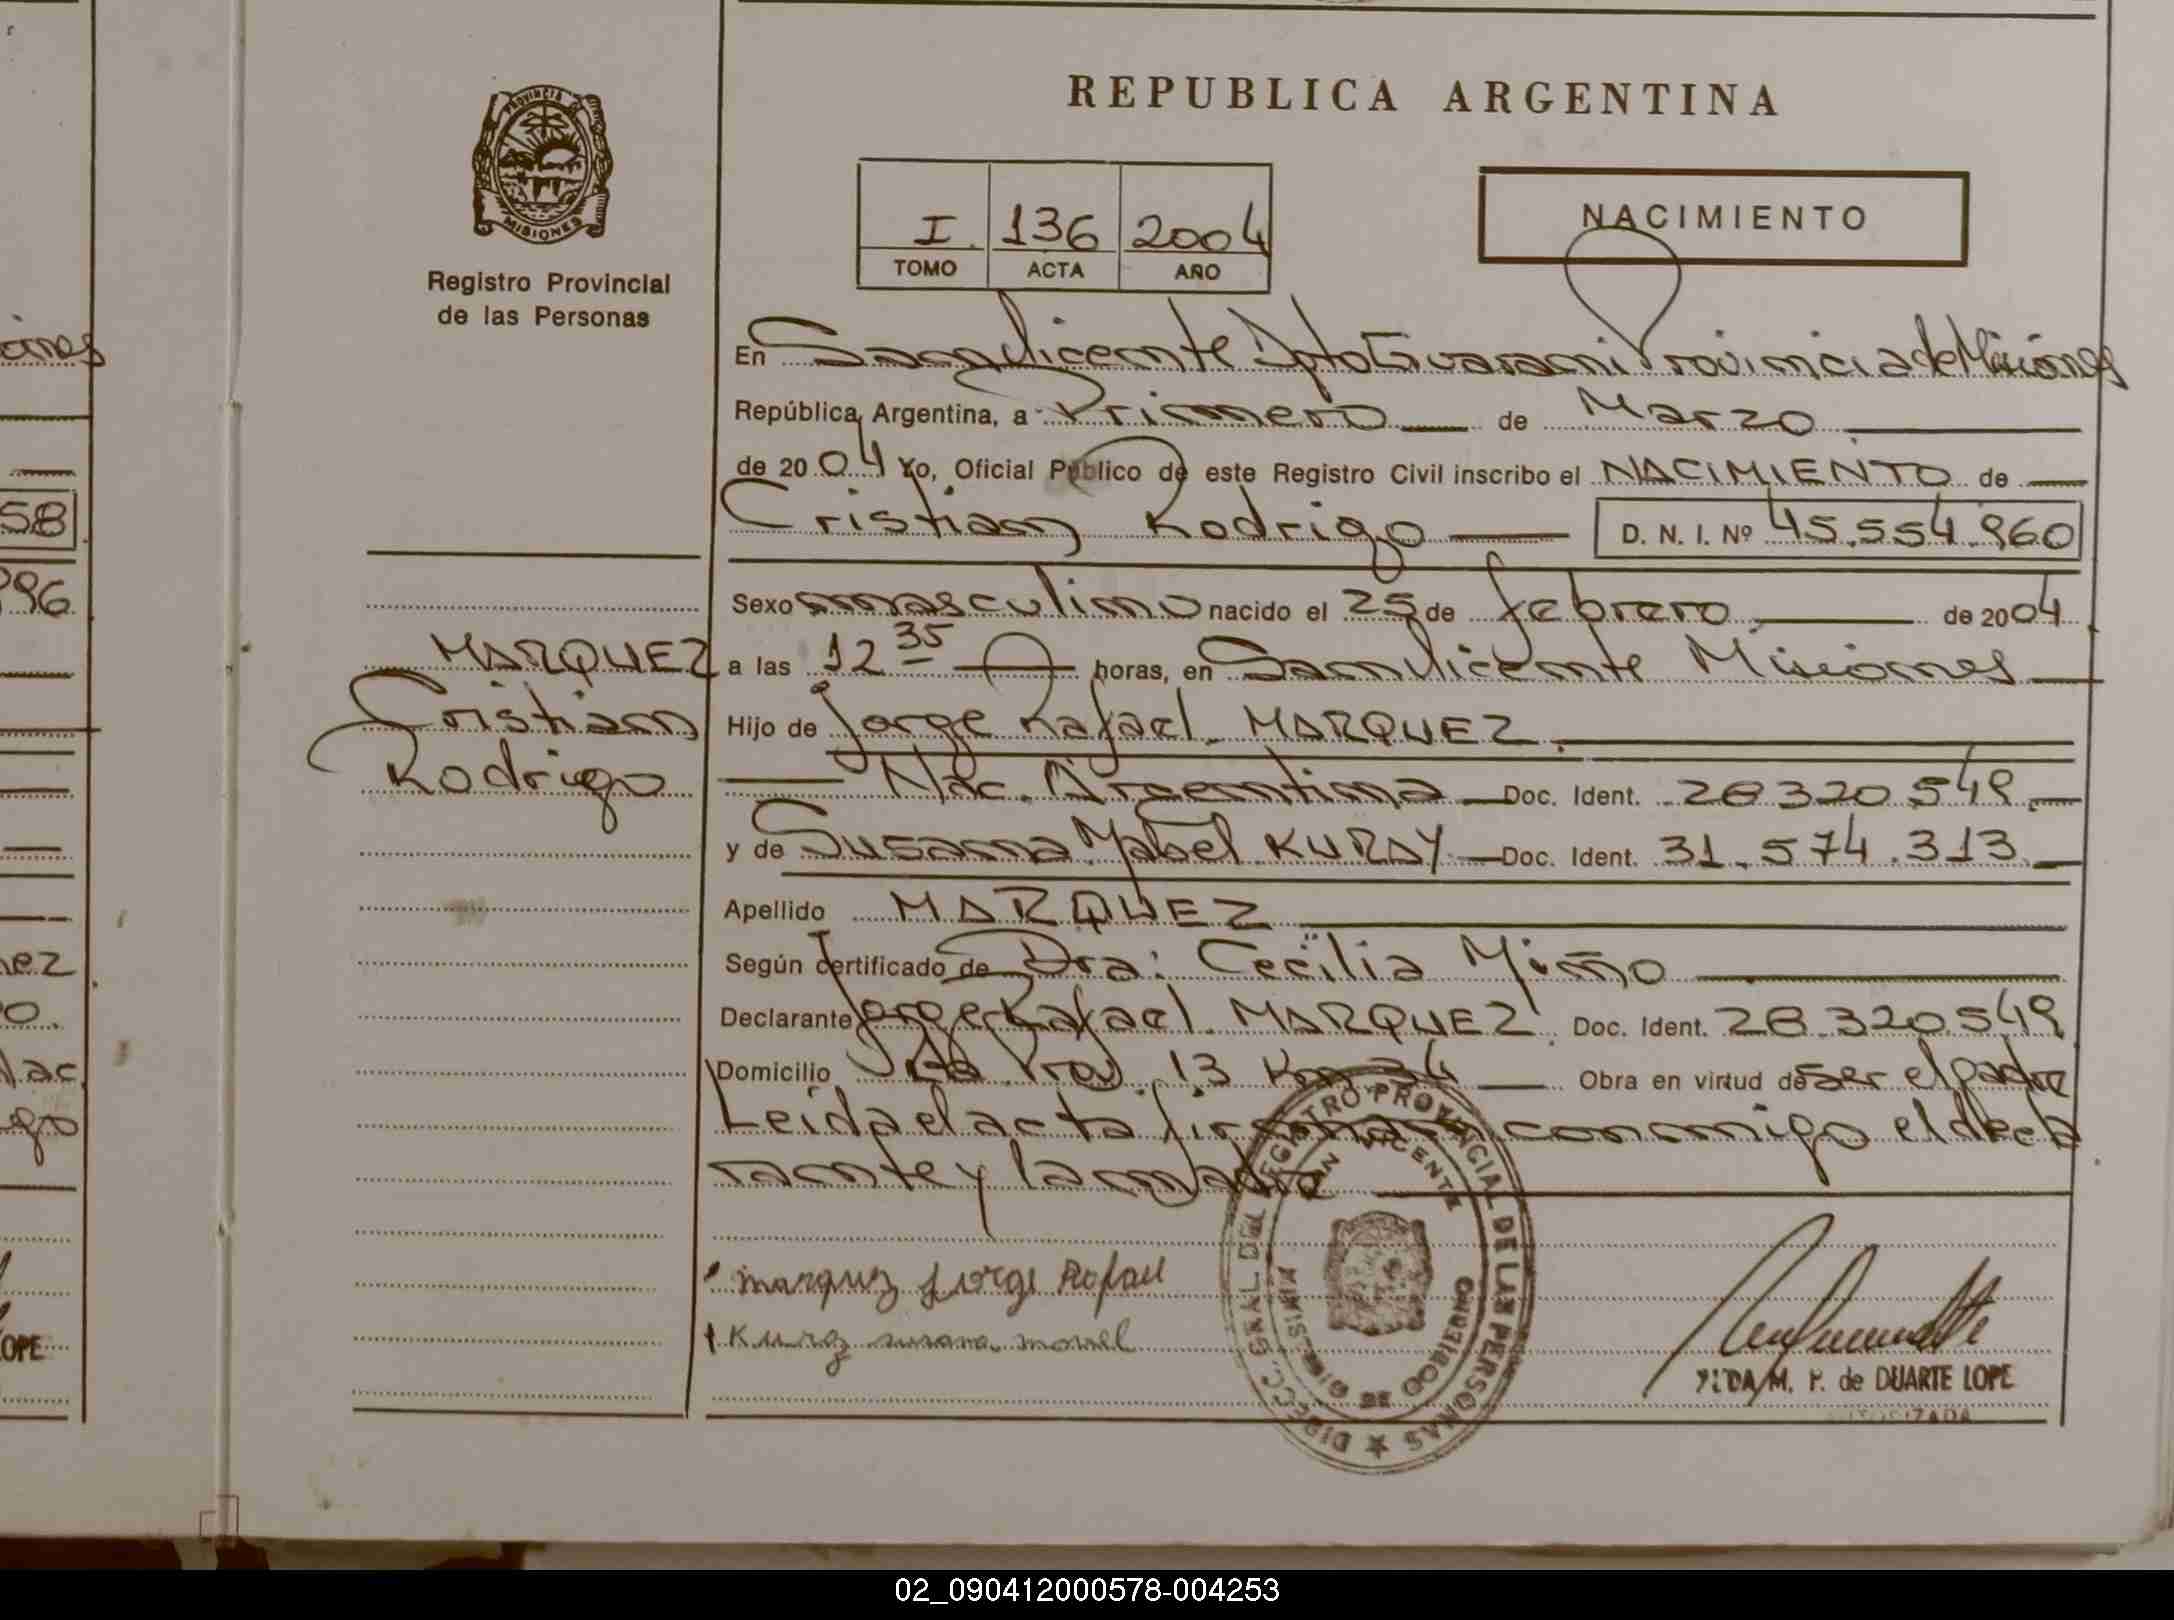 REPUBLICA ARGENTINA
PROVINCIA DE
MISIONES
Registro Provincial
de las Personas
I. 136 2004
TOMO ACTA AÑO
NACIMIENTO
En San Vicente Dpto Guarani Provincia de Misiones
República Argentina, a Primero de Marzo
de 2004 Yo, Oficial Público de este Registro Civil inscribo el NACIMIENTO de
Cristian Rodrigo D. N. I. Nº 45.554.960
Sexo masculino nacido el 25 de febrero de 2004
a las 12 35 horas, en San Vicente Misiones
Hijo de Jorge Rafael MARQUEZ
Nac. Argentina Doc. Ident. 28320549
y de Susana Mabel Doc. Ident. 31.574.313
Apellido MARQUEZ
Según certificado de Dra: Cecilia Miño
Declarante Jorge Rafael MARQUEZ Doc. Ident. 28.320.549
Domicilio Prov. 13 Km 34 Obra en virtud de ser el padre
Leida el acta firman conmigo el decla
rante y la madre
MARQUEZ
Cristian
Rodrigo
marquez Jorge Rafael
susana
DIRECC. GRAL DEL REGISTRO PROVINCIAL DE LAS PERSONAS
SAN VICENTE
MINISTERIO DE GOBIERNO
M. P. de DUARTE LOPE
AUTORIZADA
anes
58
96
ez
o.
Nac
go
LOPE
02_090412000578-004253